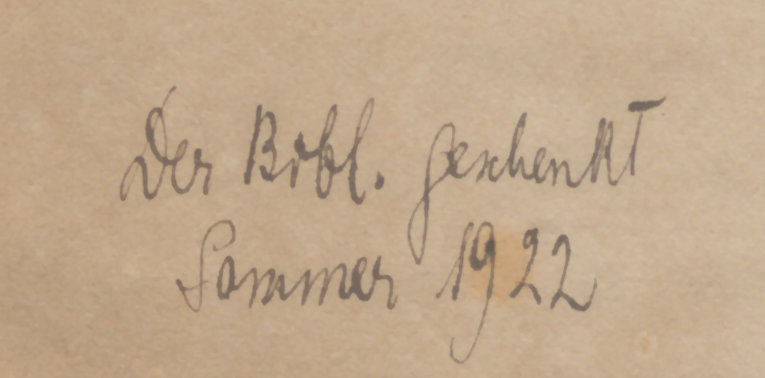 Der Bibl. geschenkt
Sommer 1922